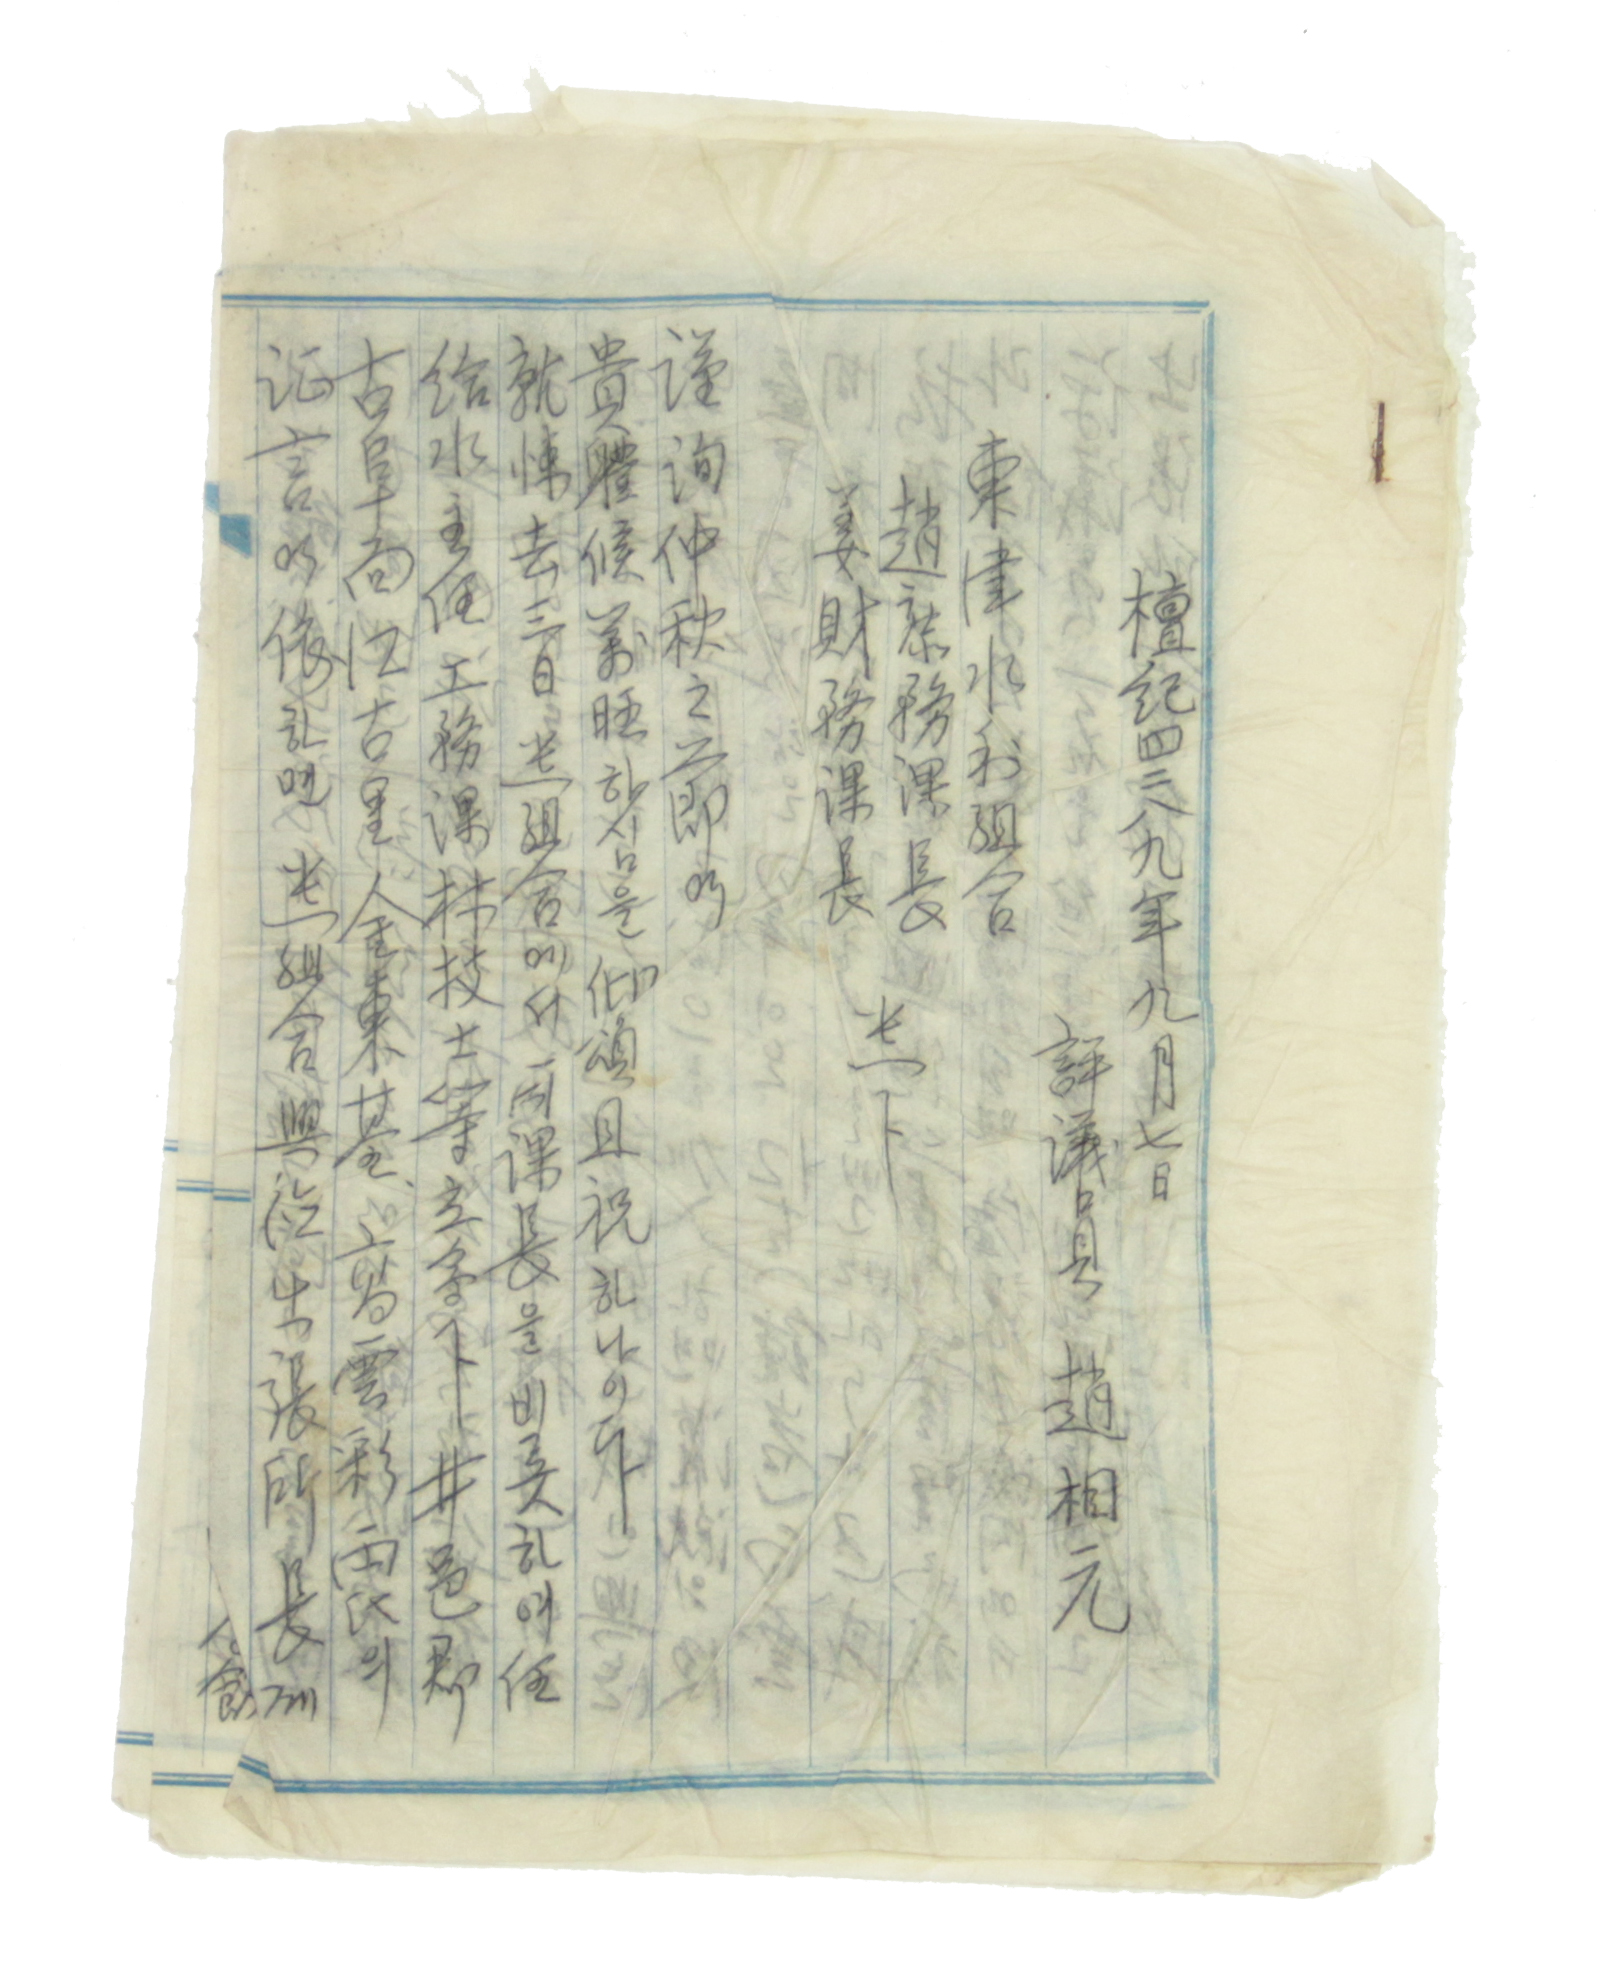 檀紀四二八九年九月七日
評議員 趙相元
東津水利組合
趙 務課長
姜財務課長 座下
謹詢仲秋之節에
貴體候萬旺하심을 仰頌且祝하나이다
就悚去三日 貴組合에서 両課長을 비롯하여 任
給水主任 工務課 林技士等 立會下 井邑郡
古阜面 古里 金東基 雲彩 両氏의
証言에 依하면 貴組合 出張所長게